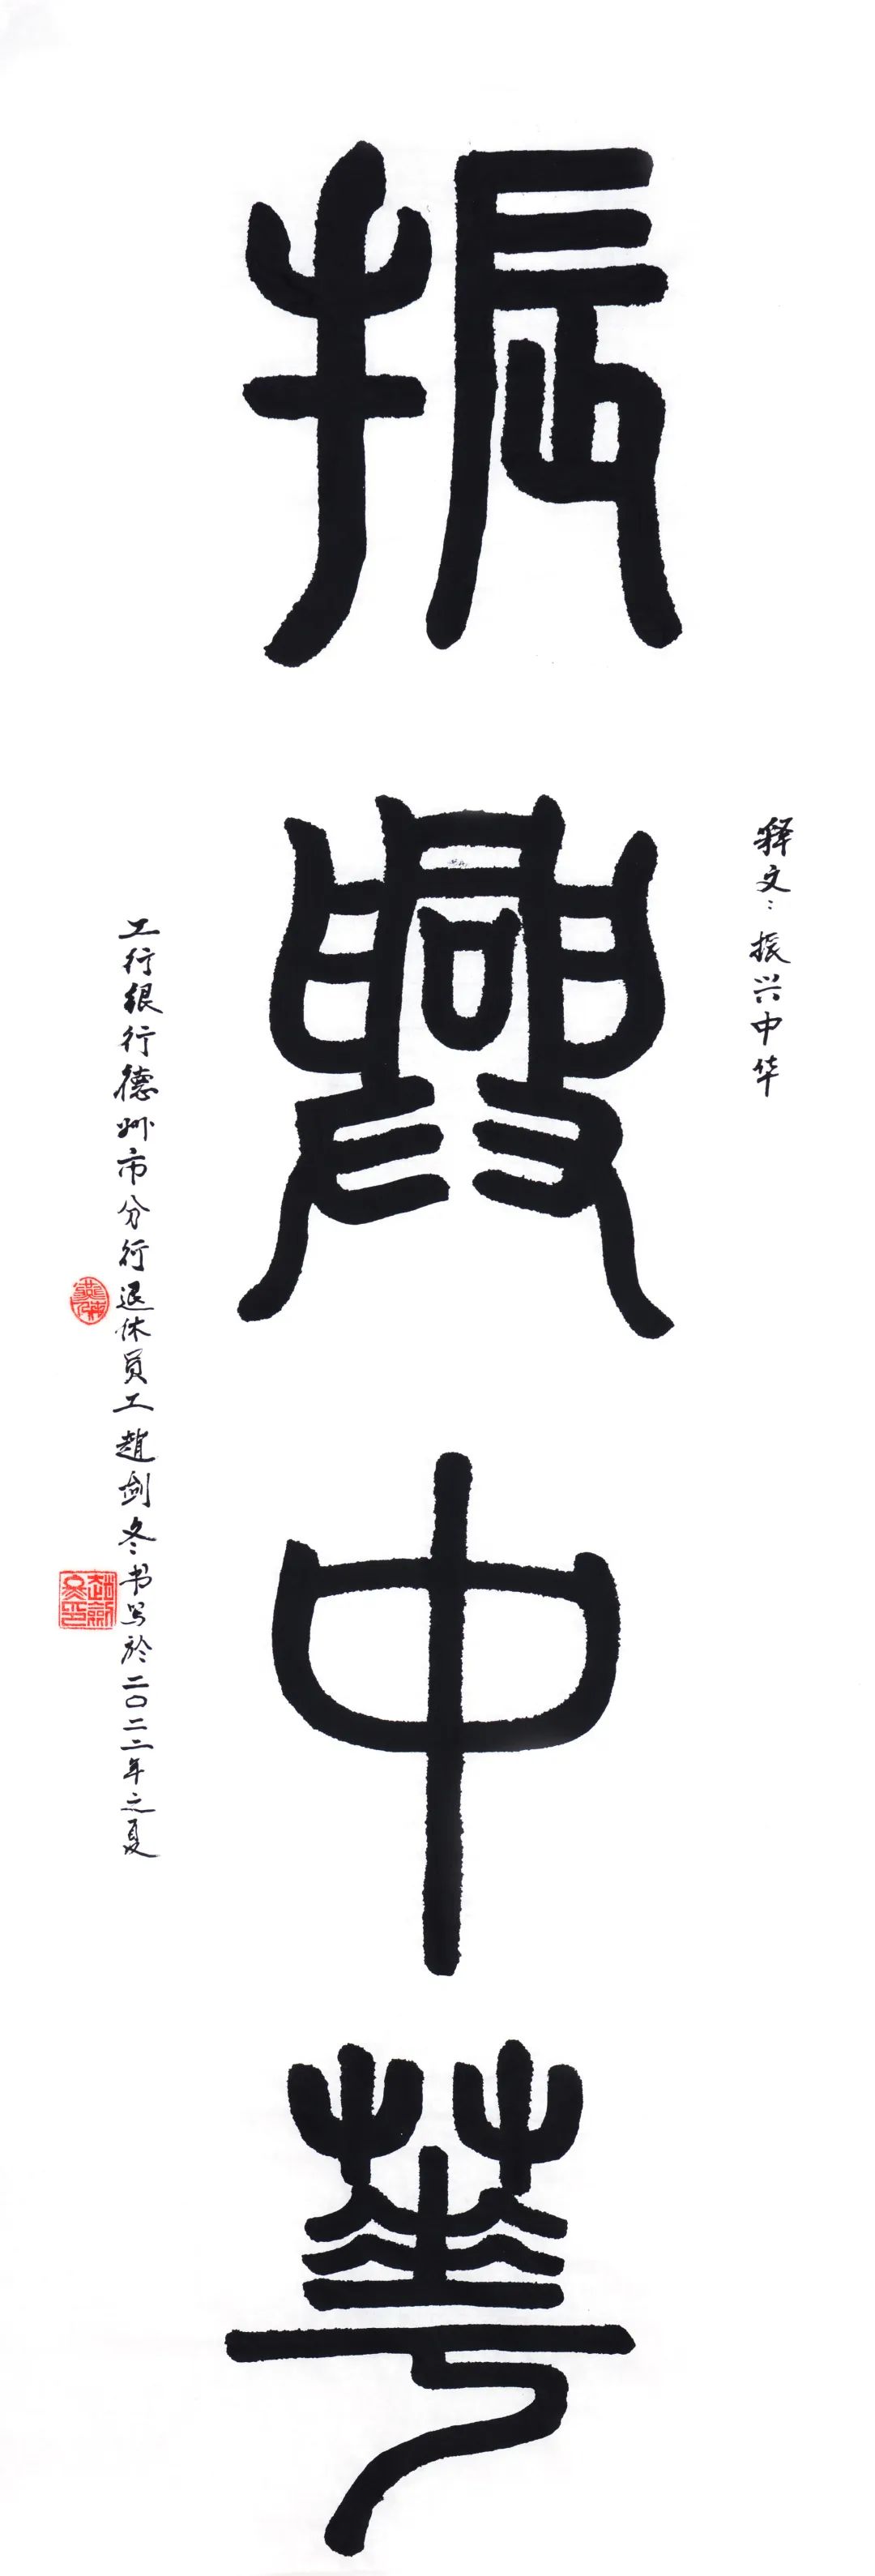 释文：振兴中华
振興中華
工行银行德州市分行退休员工趙剑冬书写於二〇二二年之夏